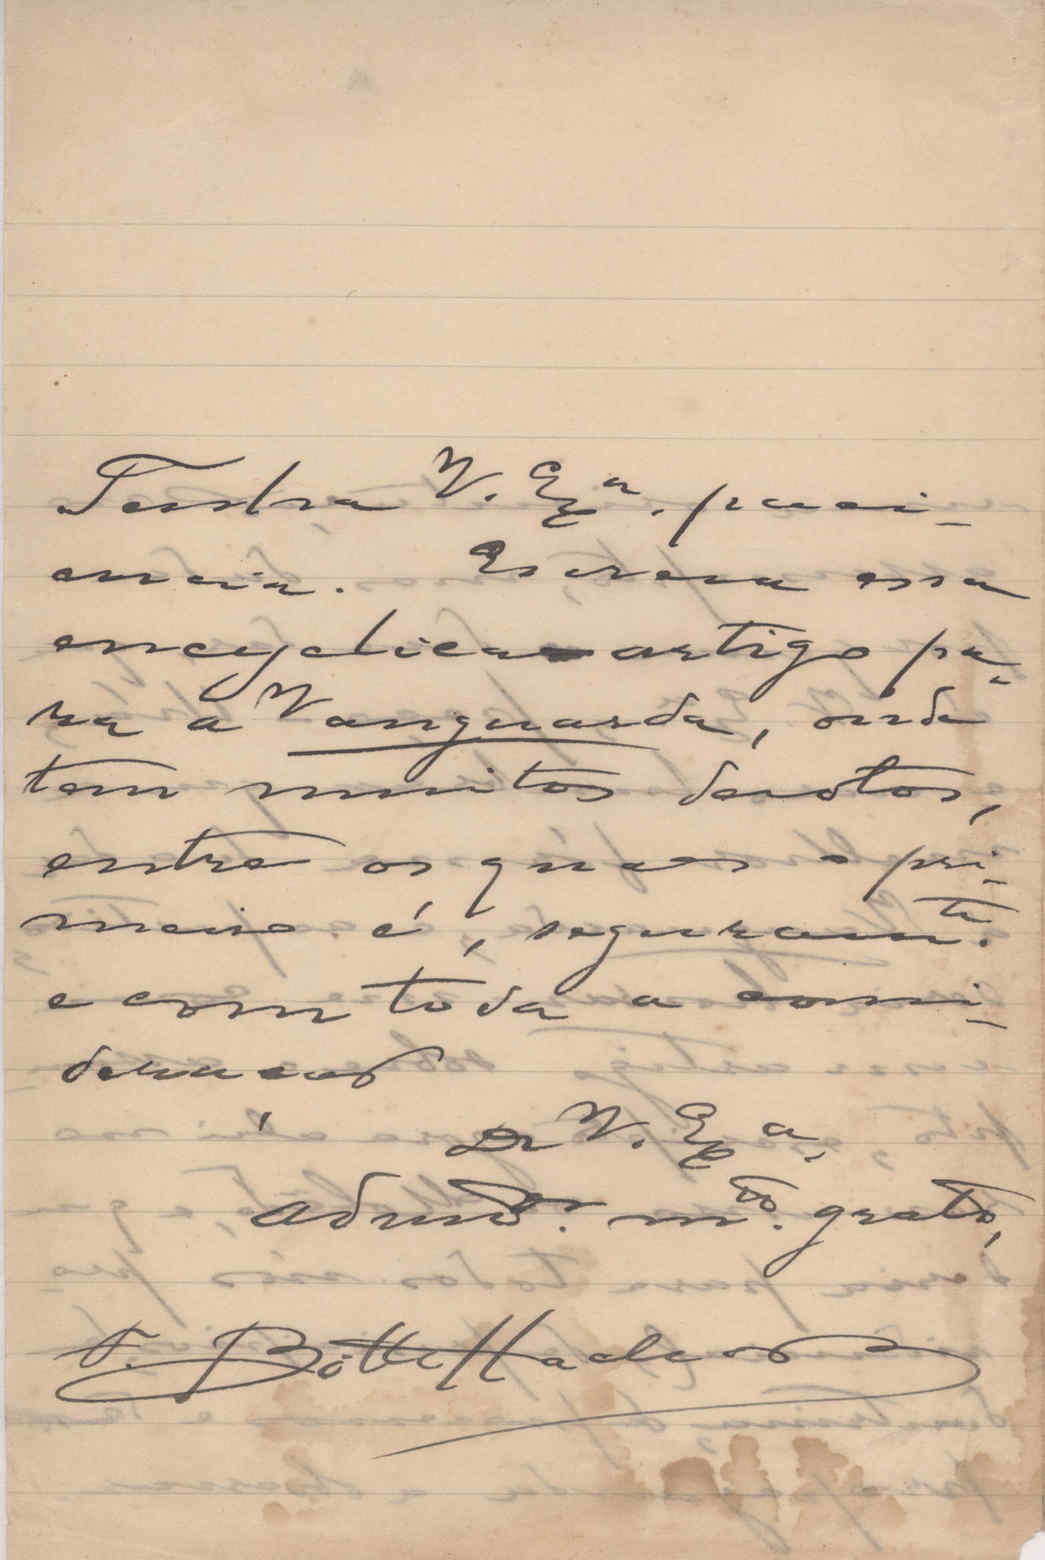 Tenha V. Exª. paci-
encia. Escreva essa
encyclica-artigo pa-
ra a Vanguarda, onde
tem muitos devotos,
entre os quaes o pri-
meiro é, seguramte.
e com toda a consi-
deração
De V. Exª.
admdor. mto. grato,